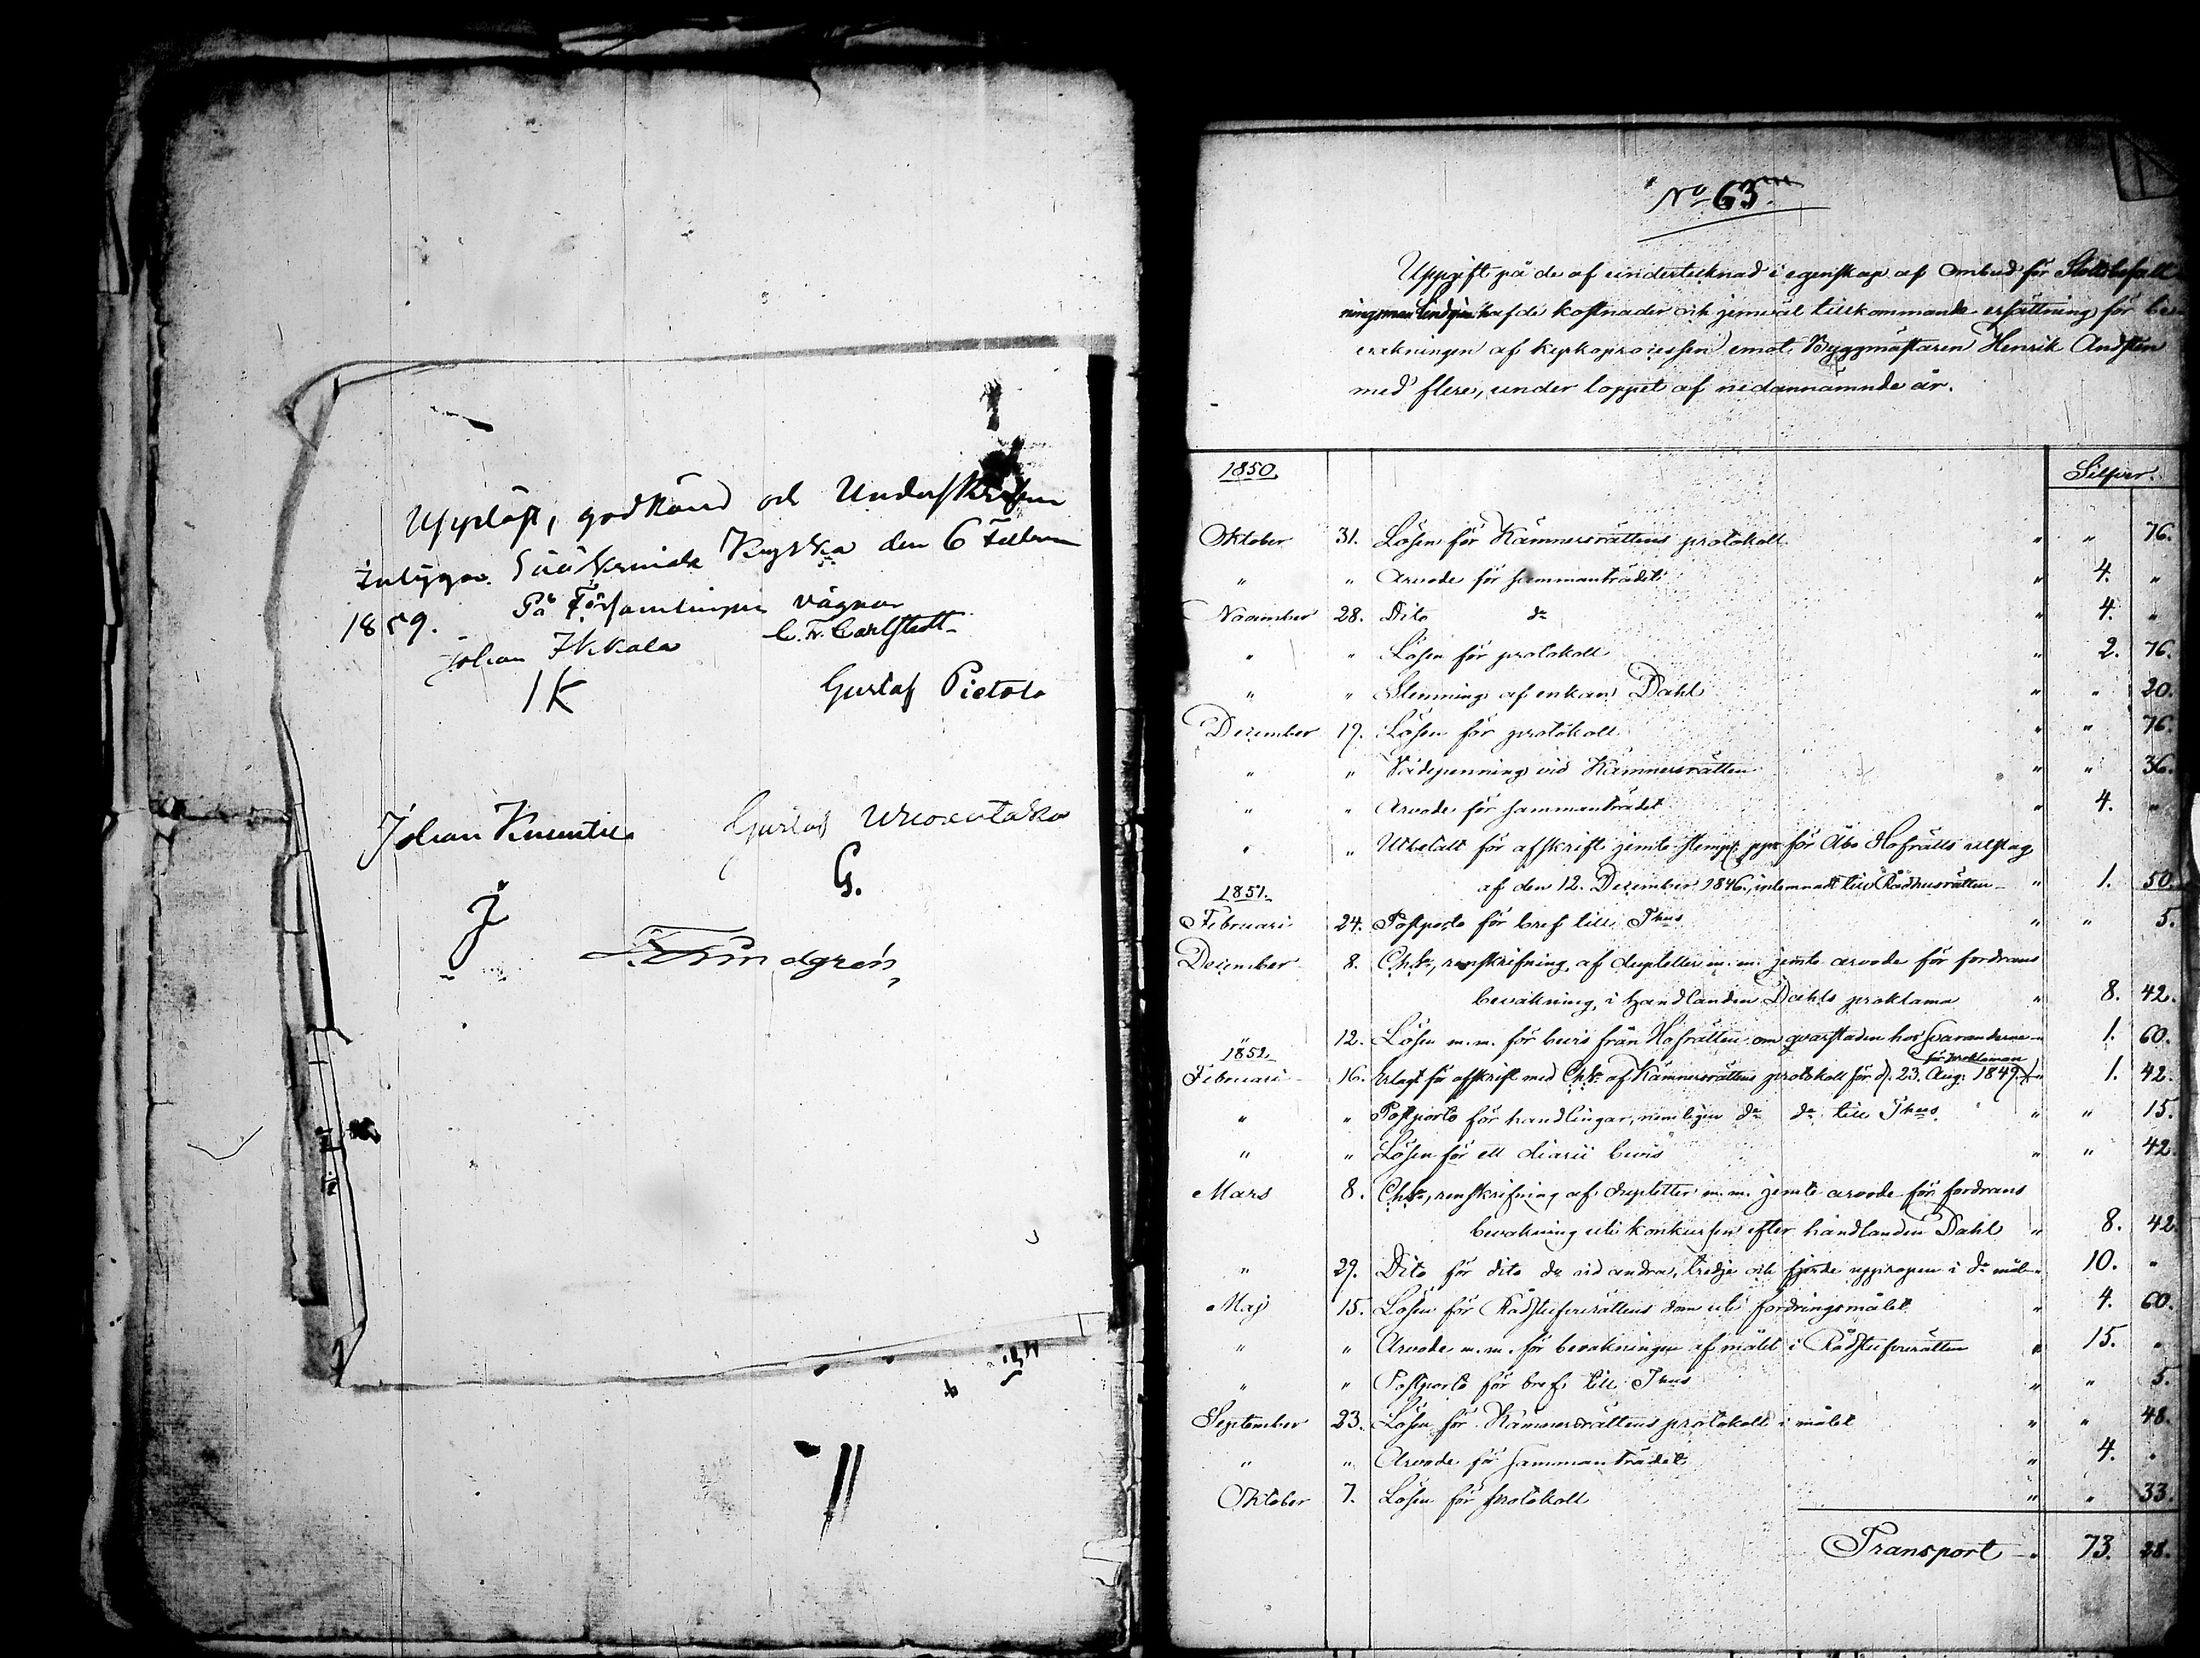 Uppläst, godkänd och Underskrifven
intygar Sääksmäki Kyrka den 6 Febru
1859. På Församlingens vägnar
Johan Ikkala C. Fr. Carlstedt
IK Gustaf Pietola
Johan Gustaf
J G.
Lindgrén
No 63
Uppgift på de af undertecknad i egenskap af ombud för
hafde kostnader och jemväl tillkommande ersättning för be
vakningen af kyrkoprocessen emot Byggmästaren Henrik Andsten
med flere, under loppet af nedannämnde år.
1850. Silfver.
Oktober 31. Lösen för Kämnersrättens protokoll " " 76.
" " Arvode för sammanträdet " 4. "
November 28. Dito do " 4. "
" " Lösen för protokoll " 2. 76.
" " Stemning af enkan Dahl " " 20.
December 19. Lösen för protokoll " " 76.
" " Vädepenning vid Kämnersrätten " " 36.
" " Arvode för sammanträdet " 4. "
" " Utbetalt för afskrift jemte för Åbo Hofrätts utslag
af den 12. December 1846, inlemnadt till Rådhusrätten " 1. 50.
1851.
Februari 24. Postporto för bref till Thus " " 5.
December 8. Ch. Sa, renskrifning af dupletter m. m. jemte arvode för fordrans
bevakning i handlanden Dahls proklama " 8. 42.
" 12. Lösen m. m. för bevis från Hofrätten om qvarstaden hos svaranderne " 1. 60.
1852 för proklaman
Februari 16. Erlagt för afskrift med Ch. Sa af Kämnersrättens protokoll för d. 23. Aug. 1849 " 1. 42.
" " Postporto för handlingar, nemligen do do till Thus " " 15.
" " Lösen för ett diarii bevis " " 42.
Mars 8. Ch. Sa, renskrifning af dupletter m. m. jemte arvode för fordrans
bevakning uti konkursen efter handlanden Dahl " 8. 42.
" 29. Dito för dito do vid andra, tredje och fjerde uppropen i do mål " 10. "
Maj 15. Lösen för Rådstufvurättens dom uti fordringsmålet " 4. 60.
" " Arvode m. m. för bevakningen af målet i Rådstufvurätten " 15. "
" " Postporto för bref till Thus " " 5.
September 23. Lösen för Kämnersrättens protokoll i målet " " 48.
" " Arvode för sammanträdet " 4. "
Oktober 7. Lösen för protokoll " " 33.
Transport " 73. 28.